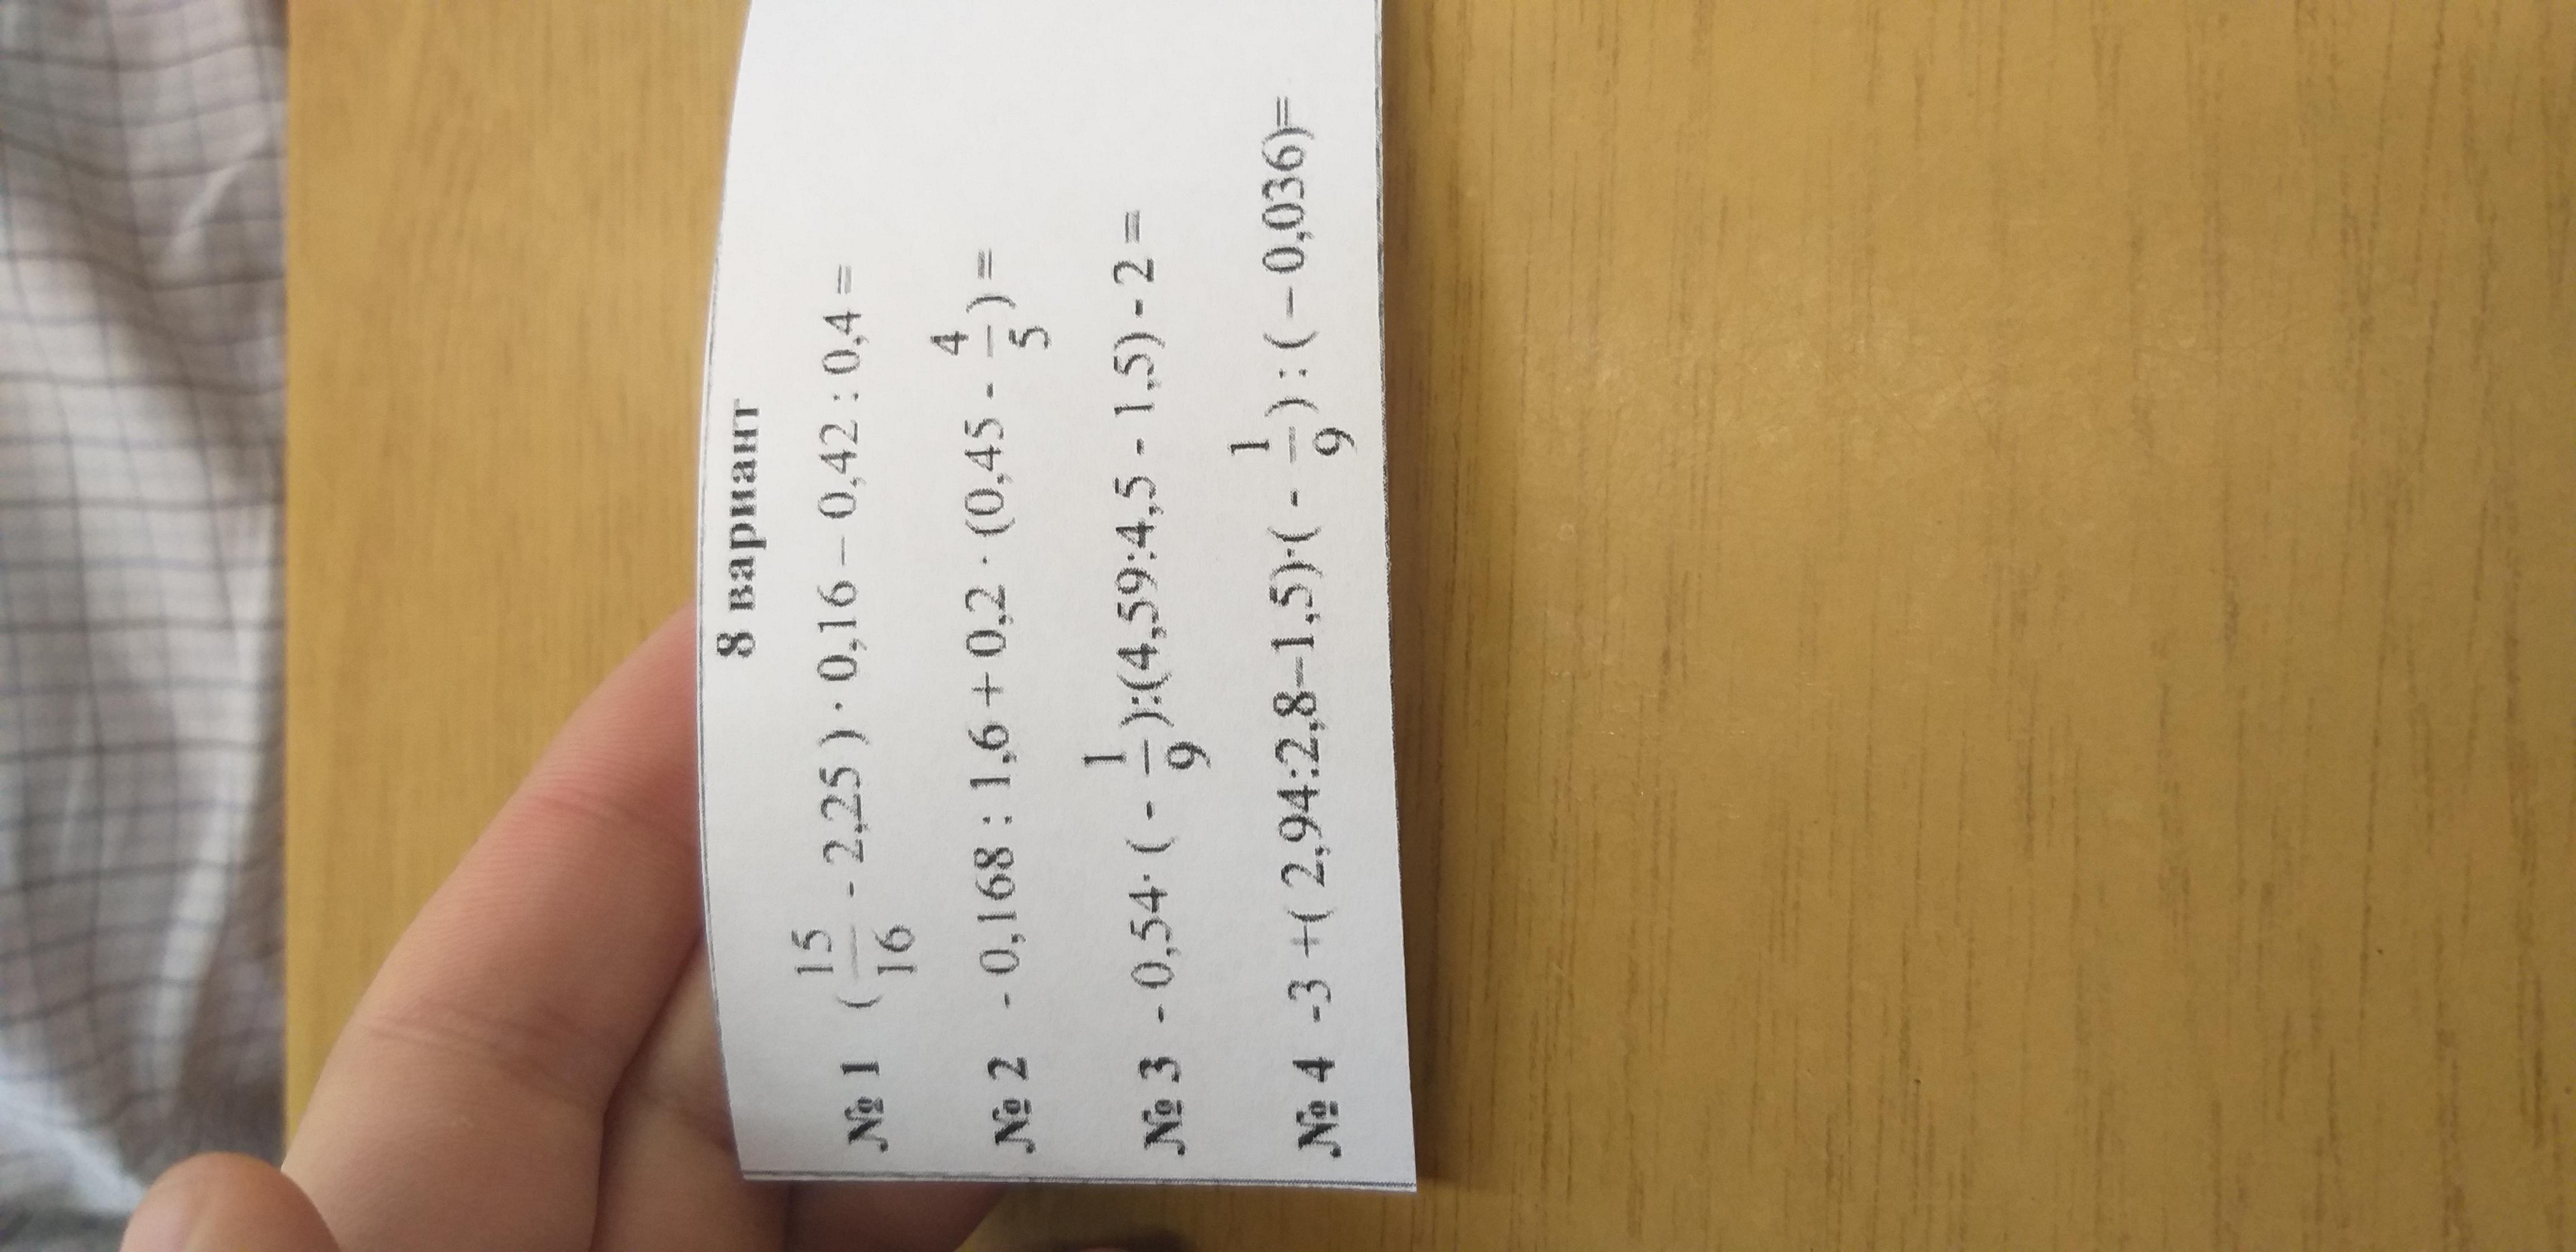 8 вариант
№ 1 ( 15/16 - 2,25 ) · 0,16 – 0,42 : 0,4 =
№ 2 - 0,168 : 1,6 + 0,2 · (0,45 - 4/5 ) =
№ 3 - 0,54· ( - 1/9 ):(4,59:4,5 - 1,5) - 2 =
№ 4 -3 +( 2,94:2,8–1,5)·( - 1/9 ) : ( – 0,036)=